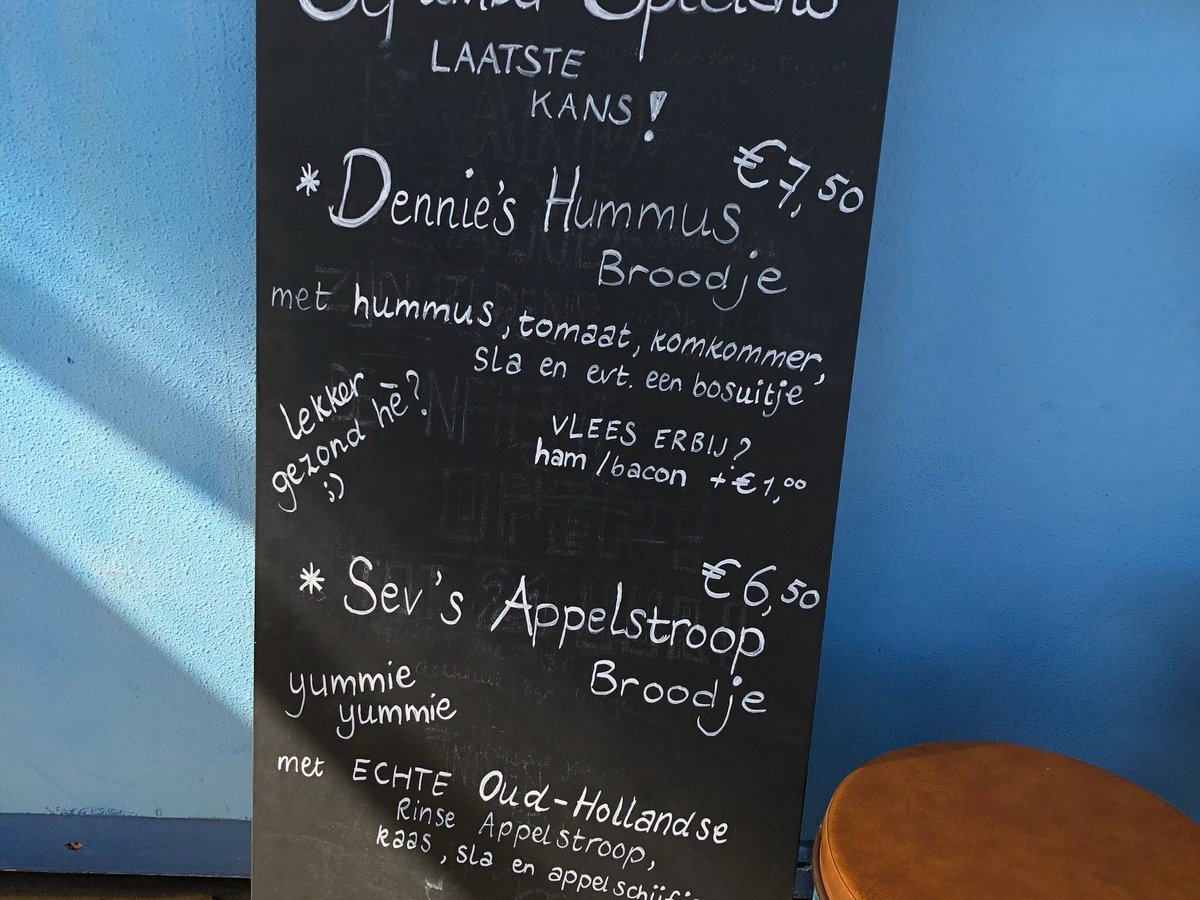 LAATSTE
KANS!
€7,50
* Dennie's Hummus
Broodje
met hummus, tomaat, komkommer,
sla en evt. een bosuitje
lekker
gezond hē?
;)
VLEES ERBIJ?
ham/bacon +€1,00
€6,50
* Sev's Appelstroop
Broodje
yummie
yummie
met ECHTE Oud-Hollandse
Rinse Appelstroop,
kaas, sla en